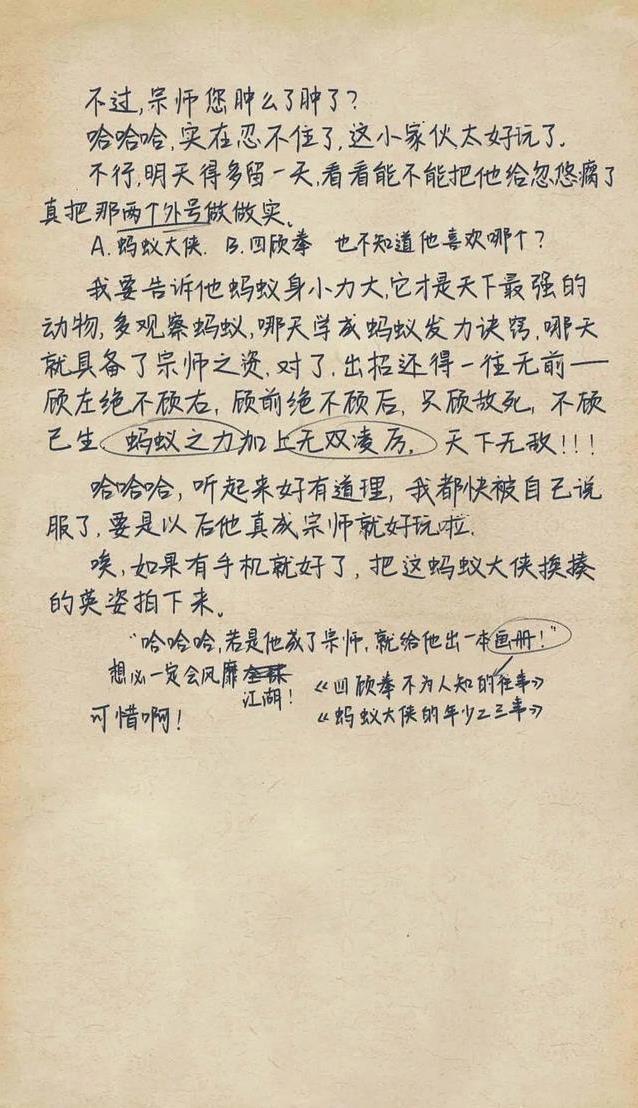 不过,宗师您肿么了肿了?
哈哈哈,实在忍不住了,这小家伙太好玩了.
不行,明天得多留一天,看看能不能把他给忽悠瘸了
真把那两个外号做做实。
A.蚂蚁大侠. B.四顾拳 也不知道他喜欢哪个?
我要告诉他蚂蚁身小力大,它才是天下最强的
动物,多观察蚂蚁,哪天学成蚂蚁发力诀窍,哪天
就具备了宗师之资.对了.出招还得一往无前——
顾左绝不顾右,顾前绝不顾后,只顾敌死,不顾
己生.蚂蚁之力加上无双凌厉.天下无敌!!!
哈哈哈,听起来好有道理,我都快被自己说
服了,要是以后他真成宗师就好玩啦.
唉,如果有手机就好了,把这蚂蚁大侠挨揍
的英姿拍下来。
"哈哈哈,若是他成了宗师,就给他出一本画册!"
想必一定会风靡
江湖!
《四顾拳不为人知的往事》
可惜啊!
《蚂蚁大侠的年少二三事》